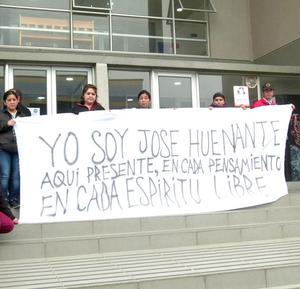 YO SOY JOSE HUENANTE
AQUÍ PRESENTE, EN CADA PENSAMIENTO
EN CADA ESPÍRITU LIBRE.